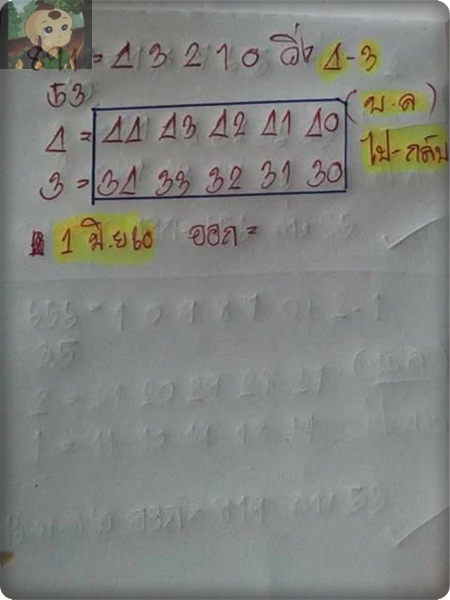 = 4 3 2 1 0 วิ่ง 4-3
53
4 = 44 43 42 41 40 (บ.ล)
3 = 34 33 32 31 30 ไป-กลับ
1 มิ.ย 60 ออก =